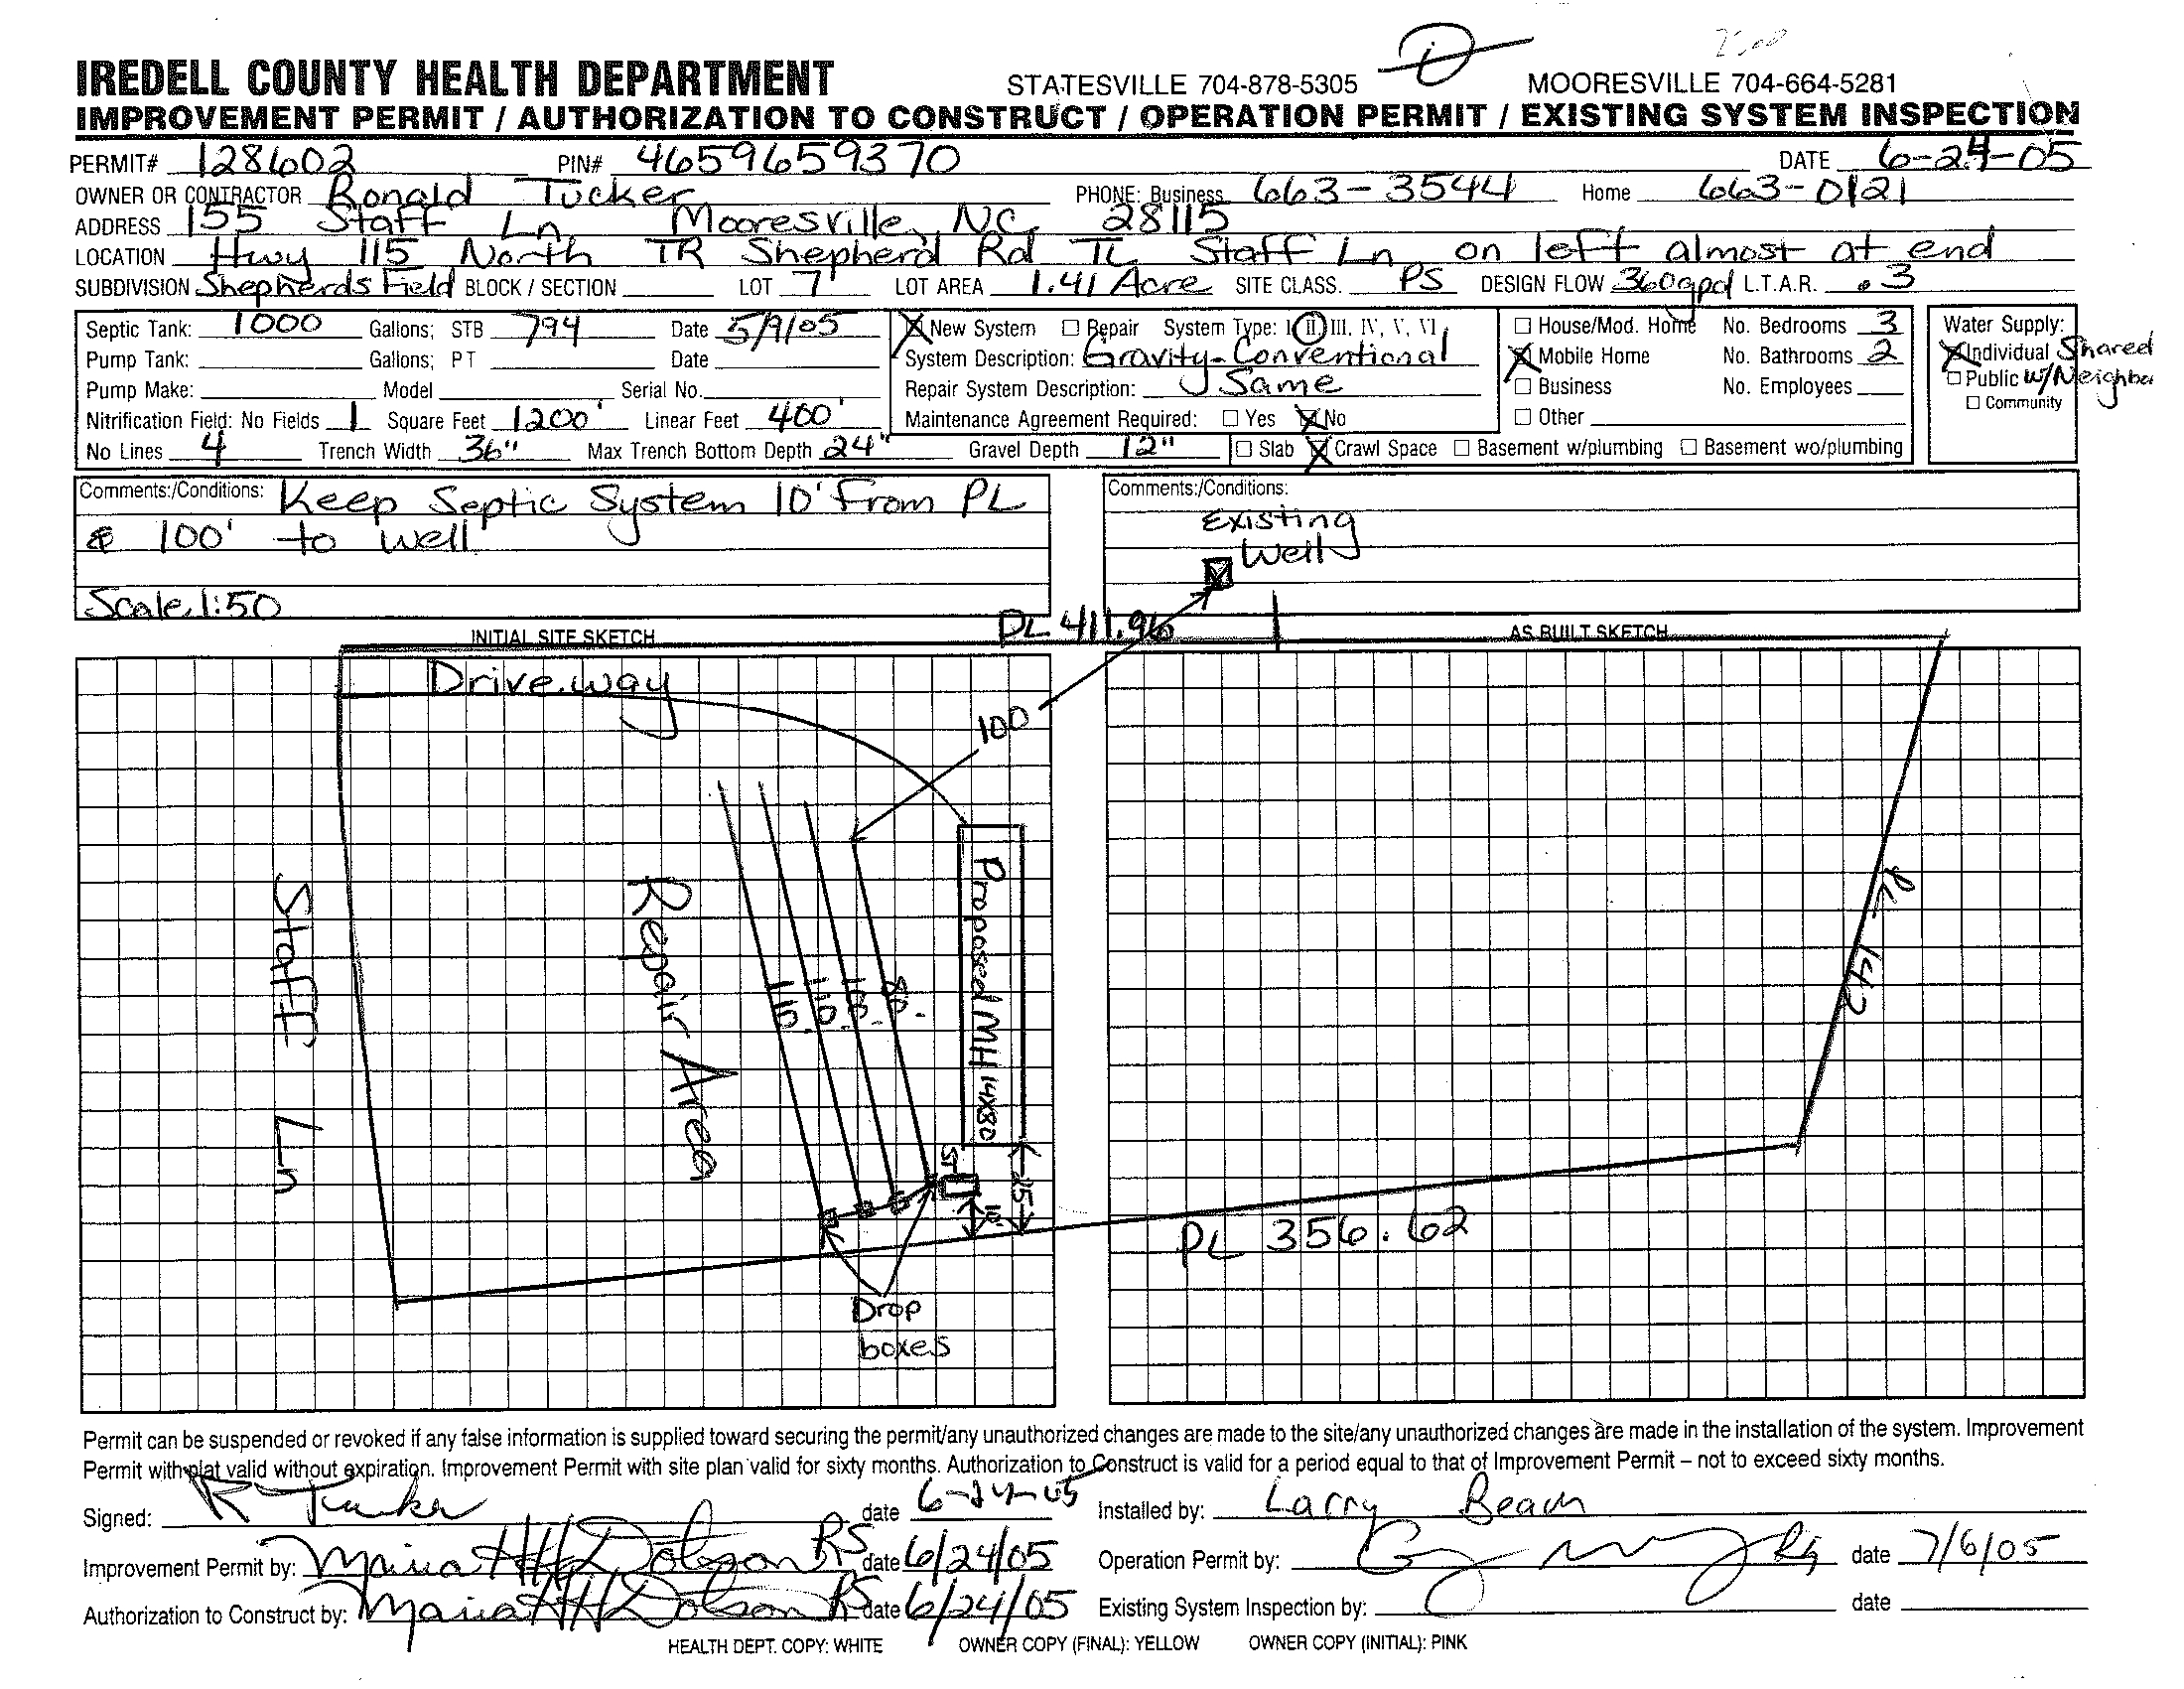 IREDELL COUNTY HEALTH DEPARTMENT STATESVILLE 704-878-5305 MOORESVILLE 704-664-5281
IMPROVEMENT PERMIT / AUTHORIZATION TO CONSTRUCT / OPERATION PERMIT / EXISTING SYSTEM INSPECTION
PERMIT# 128602 PIN# 4659659370 DATE 6-24-05
OWNER OR CONTRACTOR Ronald Tucker PHONE: Business 663-3544 Home 663-0121
ADDRESS 155 Staff Ln Mooresville, NC 28115
LOCATION Hwy 115 North TR Shepherd Rd TL Staff Ln on left almost at end
SUBDIVISION Shepherds Field BLOCK / SECTION LOT 7 LOT AREA 1.41 Acre SITE CLASS. PS DESIGN FLOW 360gpd L.T.A.R. .3
Septic Tank: 1000 Gallons; STB 794 Date 5/9/05 ☒ New System ☐ Repair System Type: I, II, III, IV, V, VI ☐ House/Mod. Home No. Bedrooms 3 Water Supply:
Pump Tank: Gallons; PT Date System Description: Gravity-Conventional ☒ Mobile Home No. Bathrooms 2 ☒ Individual Shared
Pump Make: Model Serial No. Repair System Description: Same ☐ Business No. Employees ☐ Public w/Neighbor
Nitrification Field: No Fields 1 Square Feet 1200' Linear Feet 400' Maintenance Agreement Required: ☐ Yes ☒ No ☐ Other ☐ Community
No Lines 4 Trench Width 36" Max Trench Bottom Depth 24" Gravel Depth 12" ☐ Slab ☒ Crawl Space ☐ Basement w/plumbing ☐ Basement wo/plumbing
Comments:/Conditions: Keep Septic System 10' From PL
& 100' to well
Scale 1:50
Comments:/Conditions:
Existing
Well
PL 411.96
INITIAL SITE SKETCH AS BUILT SKETCH
Driveway
100
Staff Ln
Repair Area
110'
110'
110'
80'
Proposed MH 14x80
ST
25'
10'
Drop
boxes
PL 142
PL 356.62
Permit can be suspended or revoked if any false information is supplied toward securing the permit/any unauthorized changes are made to the site/any unauthorized changes are made in the installation of the system. Improvement
Permit with plat valid without expiration. Improvement Permit with site plan valid for sixty months. Authorization to Construct is valid for a period equal to that of Improvement Permit – not to exceed sixty months.
Signed: R Tucker date 6-24-05 Installed by: Larry Beam
Improvement Permit by: Maria HH Dotson RS date 6/24/05 Operation Permit by: RS date 7/6/05
Authorization to Construct by: Maria HH Dotson RS date 6/24/05 Existing System Inspection by: date
HEALTH DEPT. COPY: WHITE OWNER COPY (FINAL): YELLOW OWNER COPY (INITIAL): PINK